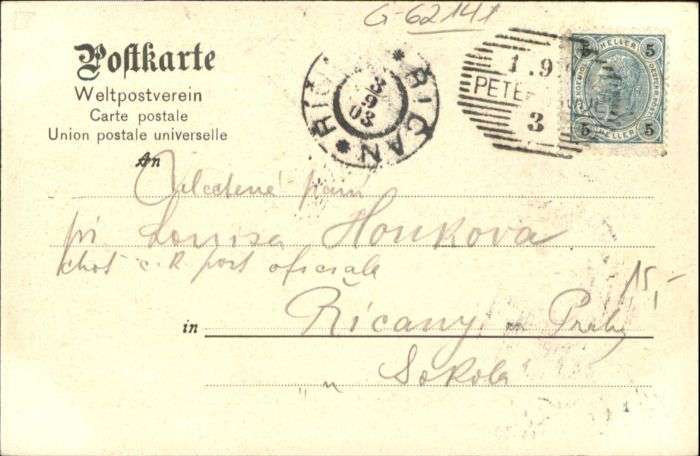 G-62141
Postkarte
Weltpostverein
Carte postale
Union postale universelle
An
ŘÍČAN * ŘÍČ
3
9
03
1.9
PETE
3
HELLER
5 5
HELLER
5 5
paní
Louisa Houkova
choť c. k. pošt oficiála
15,-
in Řícany, u Prahy
" Sokola